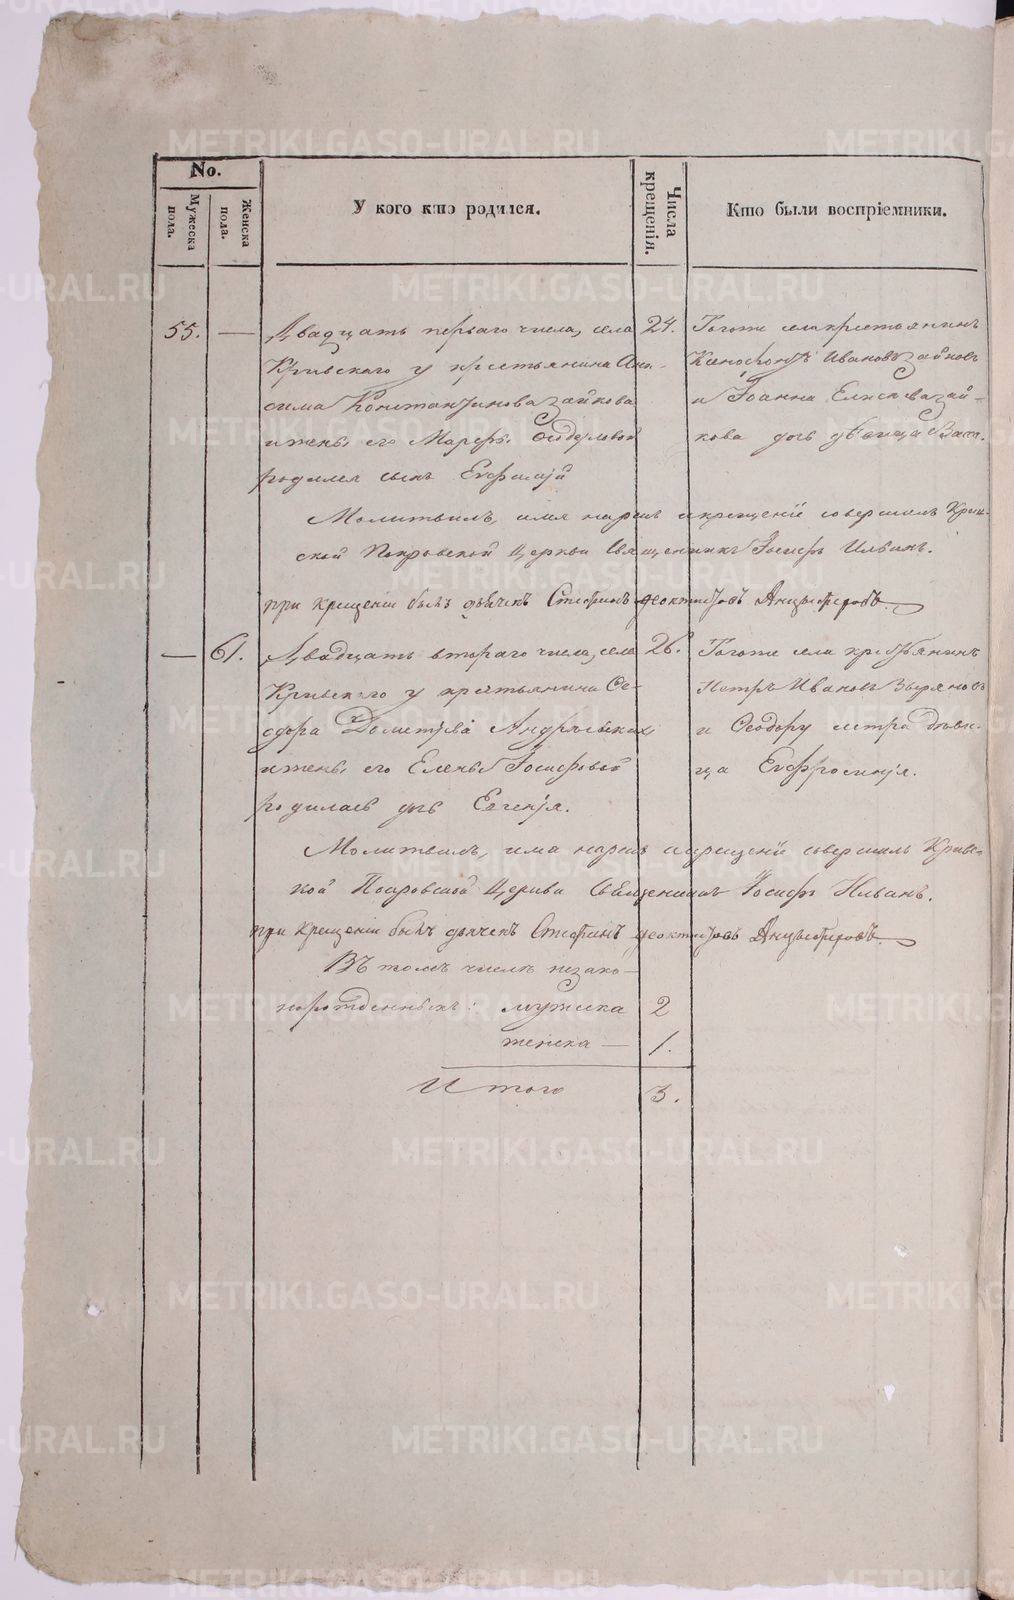 No.
Мужеска пола.
Женска пола.
У кого кто родился.
Числа крещенія.
Кто были воспріемники.
55. — Двадцать перваго числа, села
Кривскаго у крестьянина Они-
сима Константинова Зайкова
и жены его Марѳы Ѳедоровой
родился сынъ Евфимій
24.
Тогоже села крестьянинъ
Ксенофонтъ Ивановъ Зайковъ
и Іоанна Елисеева Зай-
кова дочь девица
Молитвилъ, имя нарекъ и крещеніе совершилъ Крив-
ской Покровской Церкви Священникъ Іосифъ
при крещеніи былъ дьячекъ Стефанъ Ѳеоктистовъ Анцыферовъ.
— 61. Двадцать втораго числа, села
Кривскаго у крестьянина Ѳе-
одора Дометіева Андреевскихъ
и жены его Елены Іосифовой
родилась дочь Евгенія.
26.
Тогоже села крестьянинъ
Петръ Ивановъ Зыряновъ
и Ѳеодору сестра деви-
ца Евфросинія.
Молитвилъ, имя нарекъ и крещеніе совершилъ Крив-
ской Покровской Церкви Священникъ Іосифъ
при крещеніи былъ дьячекъ Стефанъ Ѳеоктистовъ Анцыферовъ
Въ томъ числе незако-
норожденныхъ: мужеска 2
женска — 1.
Итого 3.
METRIKI.GASO-URAL.RU